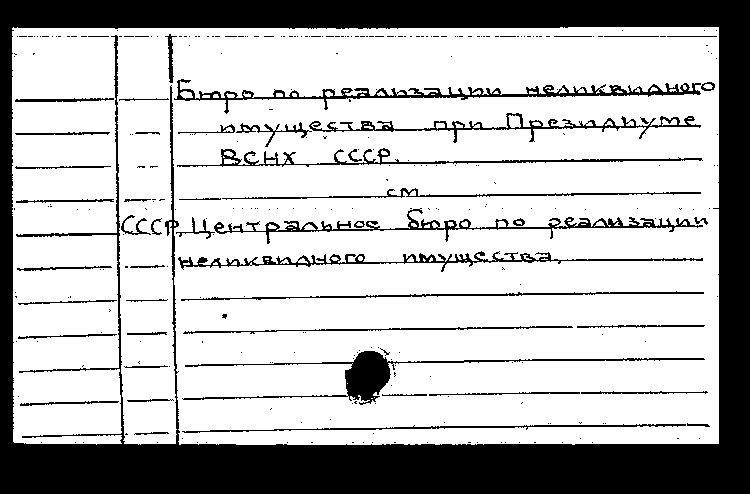 Бюро по реализации неликвидного
имущества при Президиуме
ВСНХ СССР.
см
СССР. Центральное бюро по реализации
неликвидного имущества.